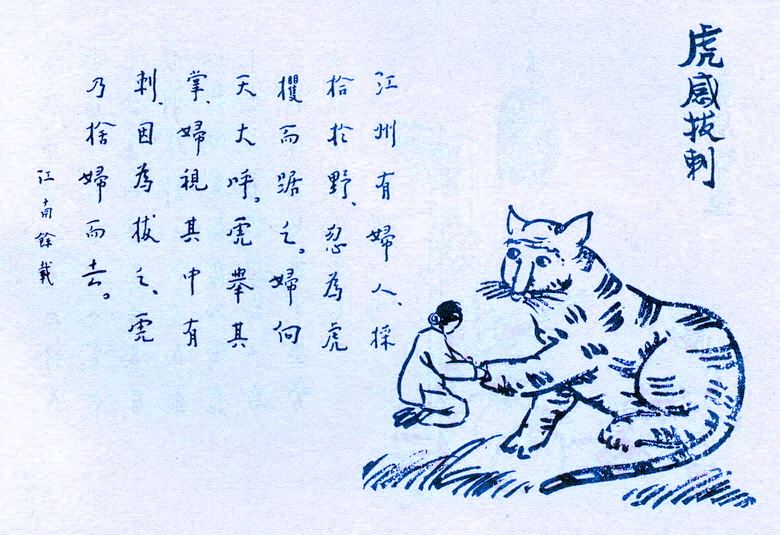 虎感拔刺
江州有婦人、採
拾於野、忽為虎
攫而踞之。婦向
天大呼。虎舉其
掌、婦視其中有
刺、因為拔之、虎
乃捨婦而去。
江南餘載